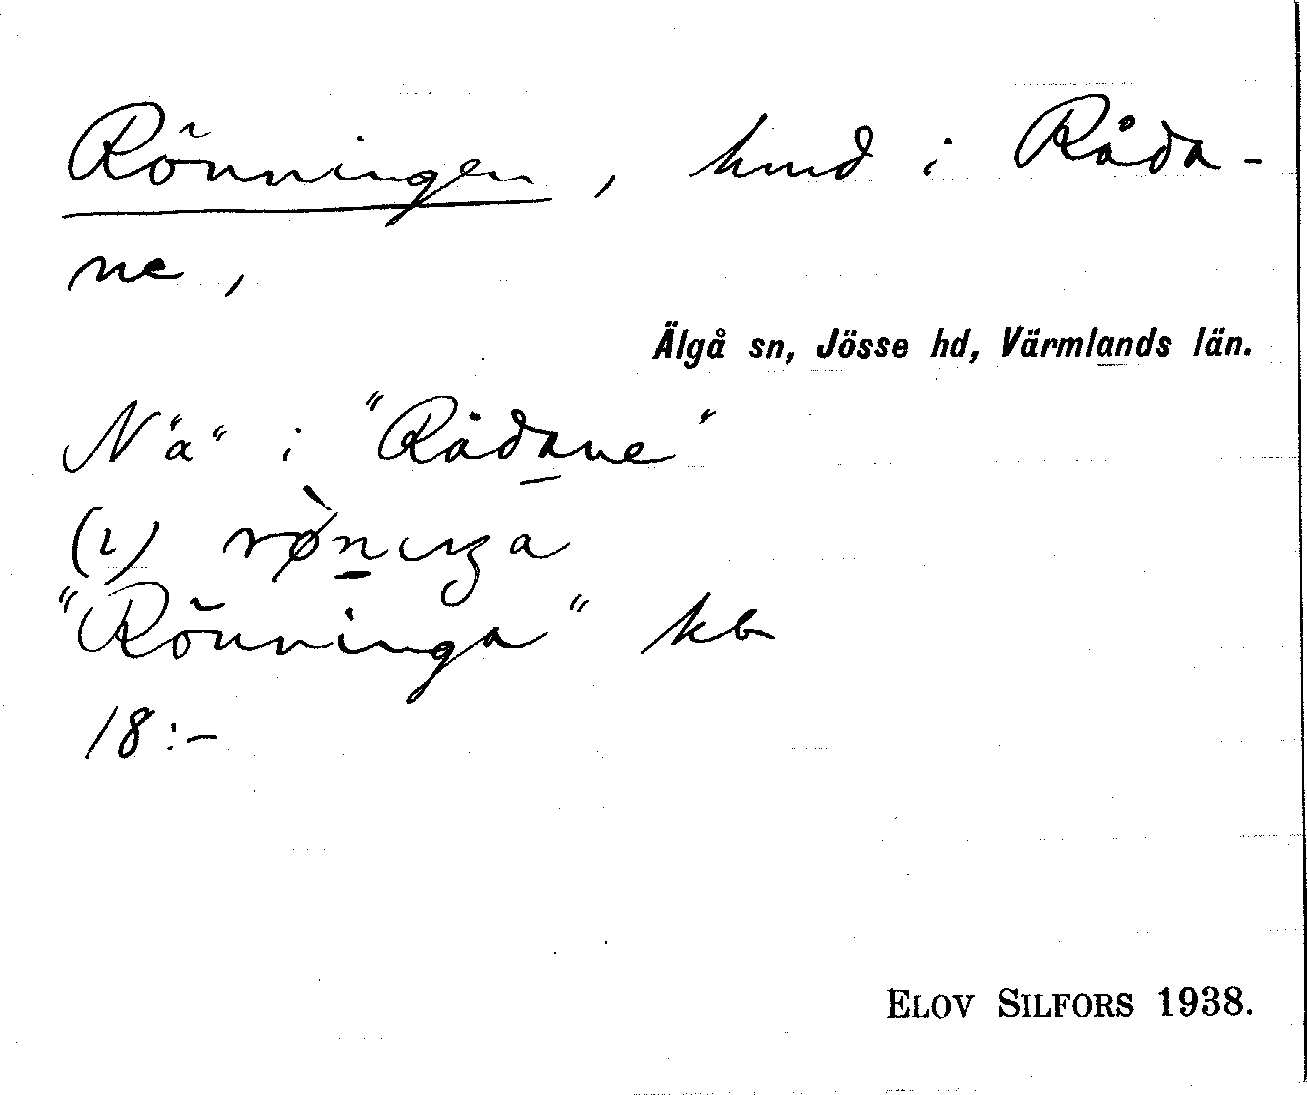 Rönningen, hmd i Råda-
ne,
Älgå sn, Jösse hd, Värmlands län.
N "a" i "Rådane"
(1) rø̀niŋa
"Rönninga" kb
18:-
ELOV SILFORS 1938.